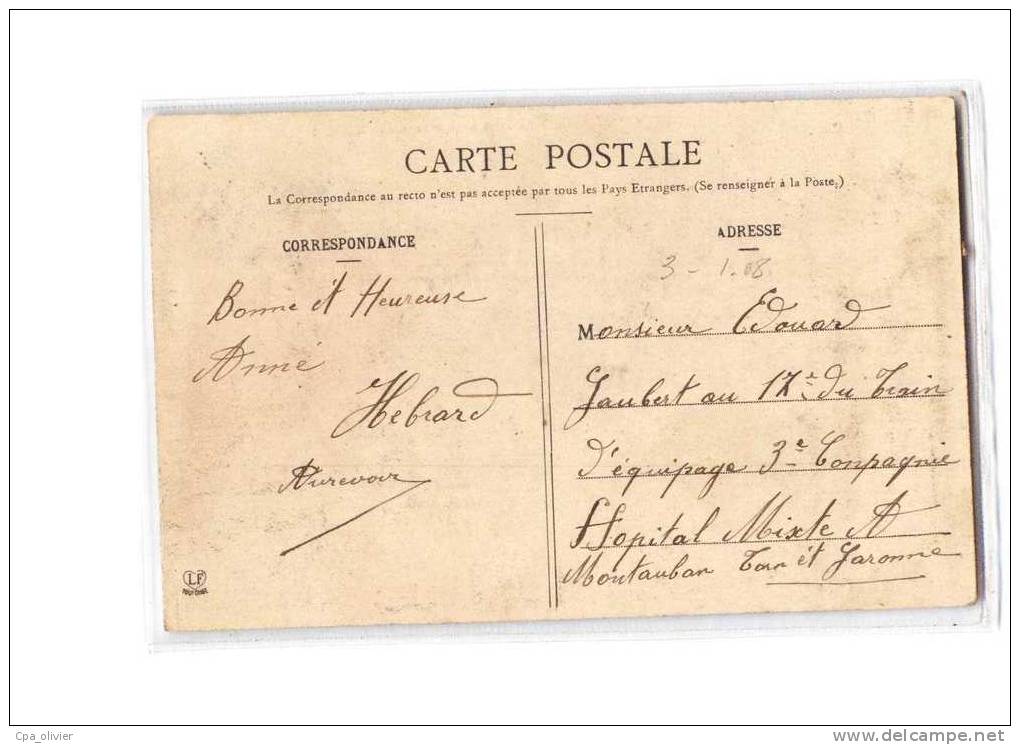 CARTE POSTALE
La Correspondance au recto n'est pas acceptée par tous les Pays Etrangers. (Se renseigner à la Poste.)
CORRESPONDANCE
Bonne ét Heureuse
Anné
Hebrard
Aurevoir
LF
ADRESSE
3-1.08
Monsieur Edouard
Jaubert au 17e du Train
d'équipage 3e Conpagnie
Hopital Mixte A
Montauban Tarn ét Garonne
Cpa_olivier
delcampe.net